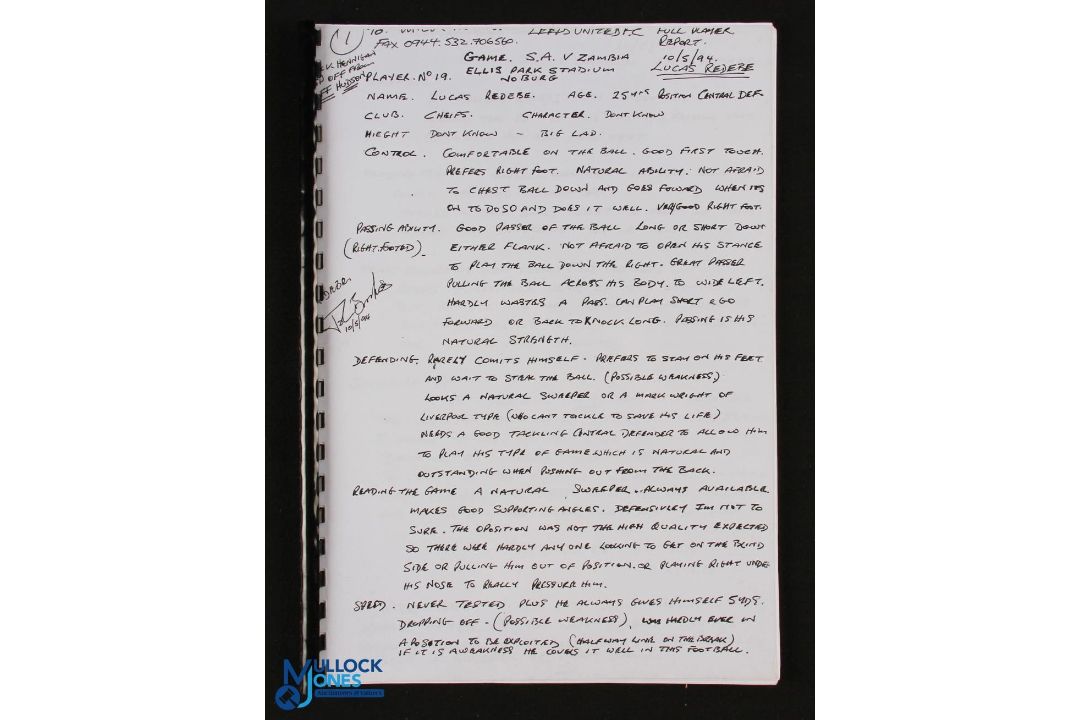 1
TO. LEEDS UNITED FC FULL PLAYER
FAX 0944.532.706560. REPORT.
GAME. S.A. V ZAMBIA 10/5/94.
PLAYER. Nº 19. ELLIS PARK STADIUM LUCAS REDEBE
HENNIGAN
OFF FROM
HUDSON
NAME. LUCAS REDEBE. AGE. 25 yrs POSITION CENTRAL DEF.
CLUB. CHEIFS. CHARACTER. DONT KNOW
HIEGHT DONT KNOW - BIG LAD.
CONTROL. COMFORTABLE ON THE BALL. GOOD FIRST TOUCH.
PREFERS RIGHT FOOT. NATURAL ABILITY. NOT AFRAID
TO CHEST BALL DOWN AND GOES FOWARD WHEN ITS
ON TO DO SO AND DOES IT WELL. VERY GOOD RIGHT FOOT.
PASSING ABILITY. GOOD PASSER OF THE BALL LONG OR SHORT DOWN
(RIGHT. FOOTED). EITHER FLANK. NOT AFRAID TO OPEN HIS STANCE
TO PLAY THE BALL DOWN THE RIGHT. GREAT PASSER
PULLING THE BALL ACROSS HIS BODY. TO WIDE LEFT.
HARDLY WASTES A PASS. CAN PLAY SHORT & GO
FORWARD OR BACK TO KNOCK LONG. PASSING IS HIS
NATURAL STRENGTH.
10/5/94
DEFENDING. RARELY COMITS HIMSELF. PREFERS TO STAY ON HIS FEET
AND WAIT TO STEAL THE BALL. (POSSIBLE WEAKNESS)
LOOKS A NATURAL SWEEPER OR A MARK WRIGHT OF
LIVERPOOL TYPE (WHO CANT TACKLE TO SAVE HIS LIFE)
NEEDS A GOOD TACKLING CENTRAL DEFENDER TO ALLOW HIM
TO PLAY HIS TYPE OF GAME WHICH IS NATURAL AND
OUTSTANDING WHEN PUSHING OUT FROM THE BACK.
READING THE GAME A NATURAL SWEEPER. ALWAYS AVAILABLE.
MAKES GOOD SUPPORTING ANGLES. DEFENSIVLEY IM NOT TO
SURE. THE OPOSITION WAS NOT THE HIGH QUALITY EXPECTED
SO THERE WERE HARDLY ANY ONE LOOKING TO GET ON THE BLIND
SIDE OR PULLING HIM OUT OF POSITION. OR PLAYING RIGHT UNDER
HIS NOSE TO REALLY PRESSURE HIM.
SPEED. NEVER TESTED PLUS HE ALWAYS GIVES HIMSELF 5 YDS.
DROPPING OFF. (POSSIBLE WEAKNESS). WAS HARDLY EVER IN
A POSETION TO BE EXPLOITED (HALFWAY LINE ON THE BREAK)
IF IT IS A WEAKNESS HE COVERS IT WELL IN THIS FOOTBALL.
MULLOCK
JONES
Auctioneers & Valuers